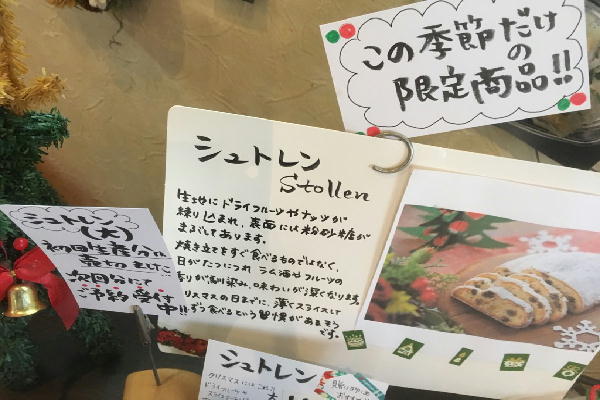 この季節だけの
限定商品!!
シュトレン
Stollen
生地にドライフルーツやナッツが
練り込まれ、表面には粉砂糖が
まぶしてあります。
焼き立てをすぐ食べるものではなく、
日がたつにつれ ラム酒やフルーツの
香りが馴染み、味わいが深くなります。
リスマスの日までに、薄くスライスして
ずつ食べるという習慣があるそう
です。
シュトレン
(大)
初回生産分は
売切ました
次回分にて
ご予約受付
中!!
シュトレン
クリスマスには
ドライフルーツ